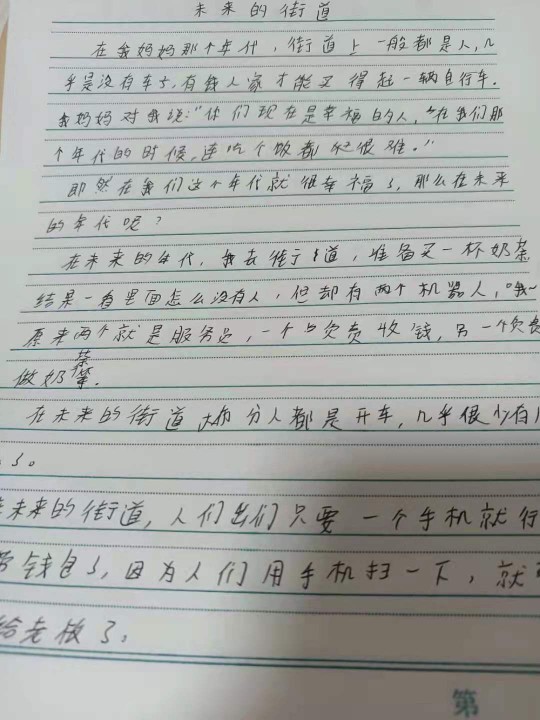 未来的街道
在我妈妈那个年代，街道上一般都是人，几
乎是没有车了，有钱人家才能买得起一辆自行车。
我妈妈对我说："你们现在是幸福的人，"在我们那
个年代的时候，连吃个饭都很难。"
即然在我们这个年代就很幸福了，那么在未来
的年代呢？
在未来的年代，我去街道，准备买一杯奶茶
结果一看里面怎么没有人，但却有两个机器人，"哦~
原来两个就是服务员，一个负责收钱，另一个负责
做奶茶。
在未来的街道大部分人都是开车，几乎很少有
了。
未来的街道，人们出们只要一个手机就行
带钱包了，因为人们用手机扫一下，就
给老板了。
第